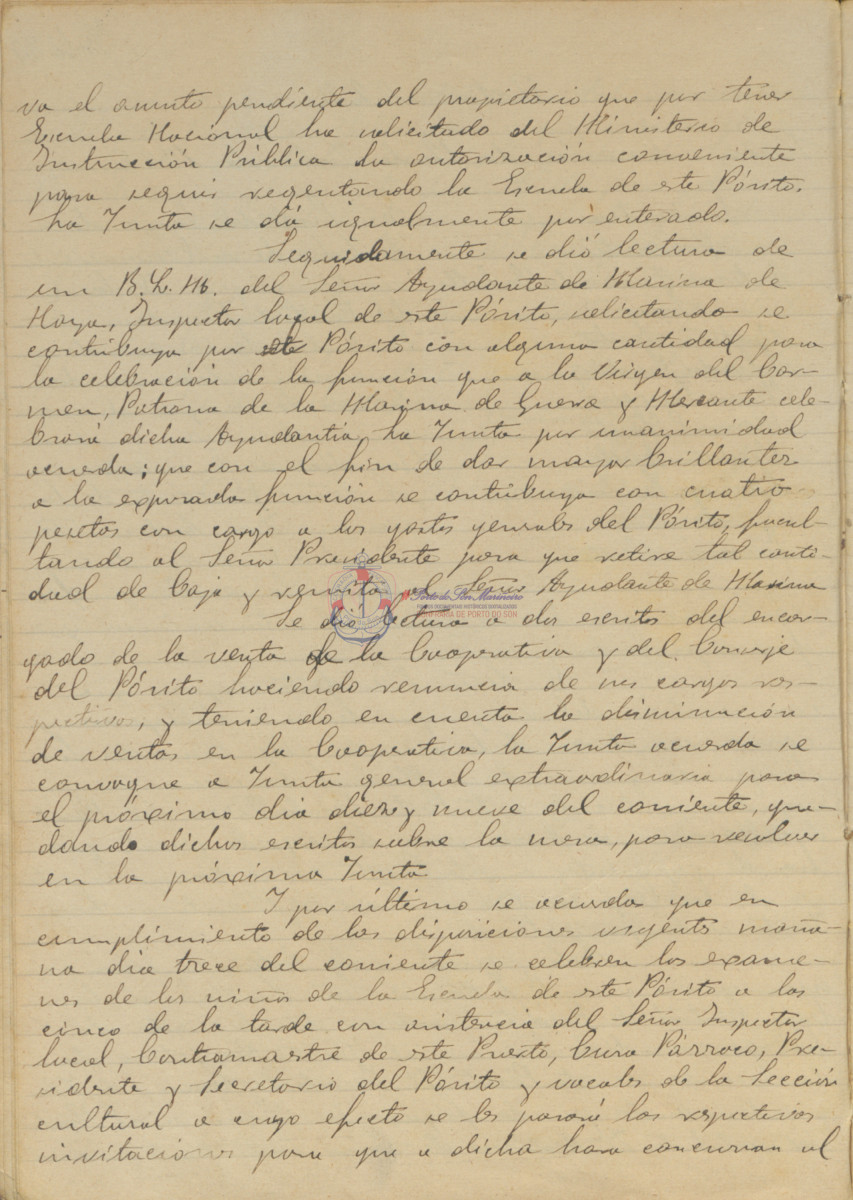 va el asunto pendiente del propietario que por tener
Escuela Nacional ha solicitado del Ministerio de
Instrucción Pública la autorización conveniente
para seguir regentando la Escuela de este Pósito.
La Junta se dá igualmente por enterado.
Seguidamente se dió lectura de
un B. L. M. del Señor Ayudante de Marina de
Noya, Inspector local de este Pósito, solicitando se
contribuya por este Pósito con alguna cantidad para
la celebración de la función que a la Virgen del Car-
men, Patrona de la Marina de Guerra y Mercante cele-
brará dicha Ayudantía, La Junta por unanimidad
acuerda; que con el fin de dar mayor brillantez
a la expresada función se contribuya con cuatro
pesetas con cargo a los gastos generales del Pósito, facul-
tando al Señor Presidente para que retire tal canti-
dad de Caja y remita al Señor Ayudante de Marina
Porto do Son Marineiro
CONFRARÍA DE PORTO DO SON
Se dió lectura a dos escritos del encar-
gado de la venta de la Cooperativa y del Conserje
del Pósito haciendo renuncia de sus cargos res-
pectivos, y teniendo en cuenta la disminución
de ventas en la Cooperativa, la Junta acuerda se
convoque a Junta general extraordinaria para
el próximo dia diez y nueve del corriente, que-
dando dichos escritos sobre la mesa, para resolver
en la próxima Junta
I por último se acuerda que en
cumplimiento de las disposiciones vigentes maña-
na dia trece del corriente se celebren los exame-
nes de los niños de la Escuela de este Pósito a las
cinco de la tarde con asistencia del Señor Inspector
local, Contramastre de este Puerto, Cura Párroco, Pre-
sidente y Secretario del Pósito y vocales de la Sección
cultural a cuyo efecto se les pasará las respectivas
invitaciones para que a dicha hora concurran al